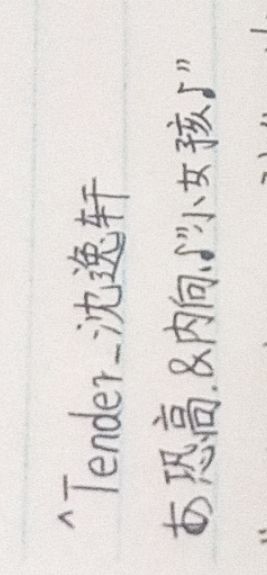 ^Tender_沈逸轩
あ恐高.&内向.♪"小女孩♪"